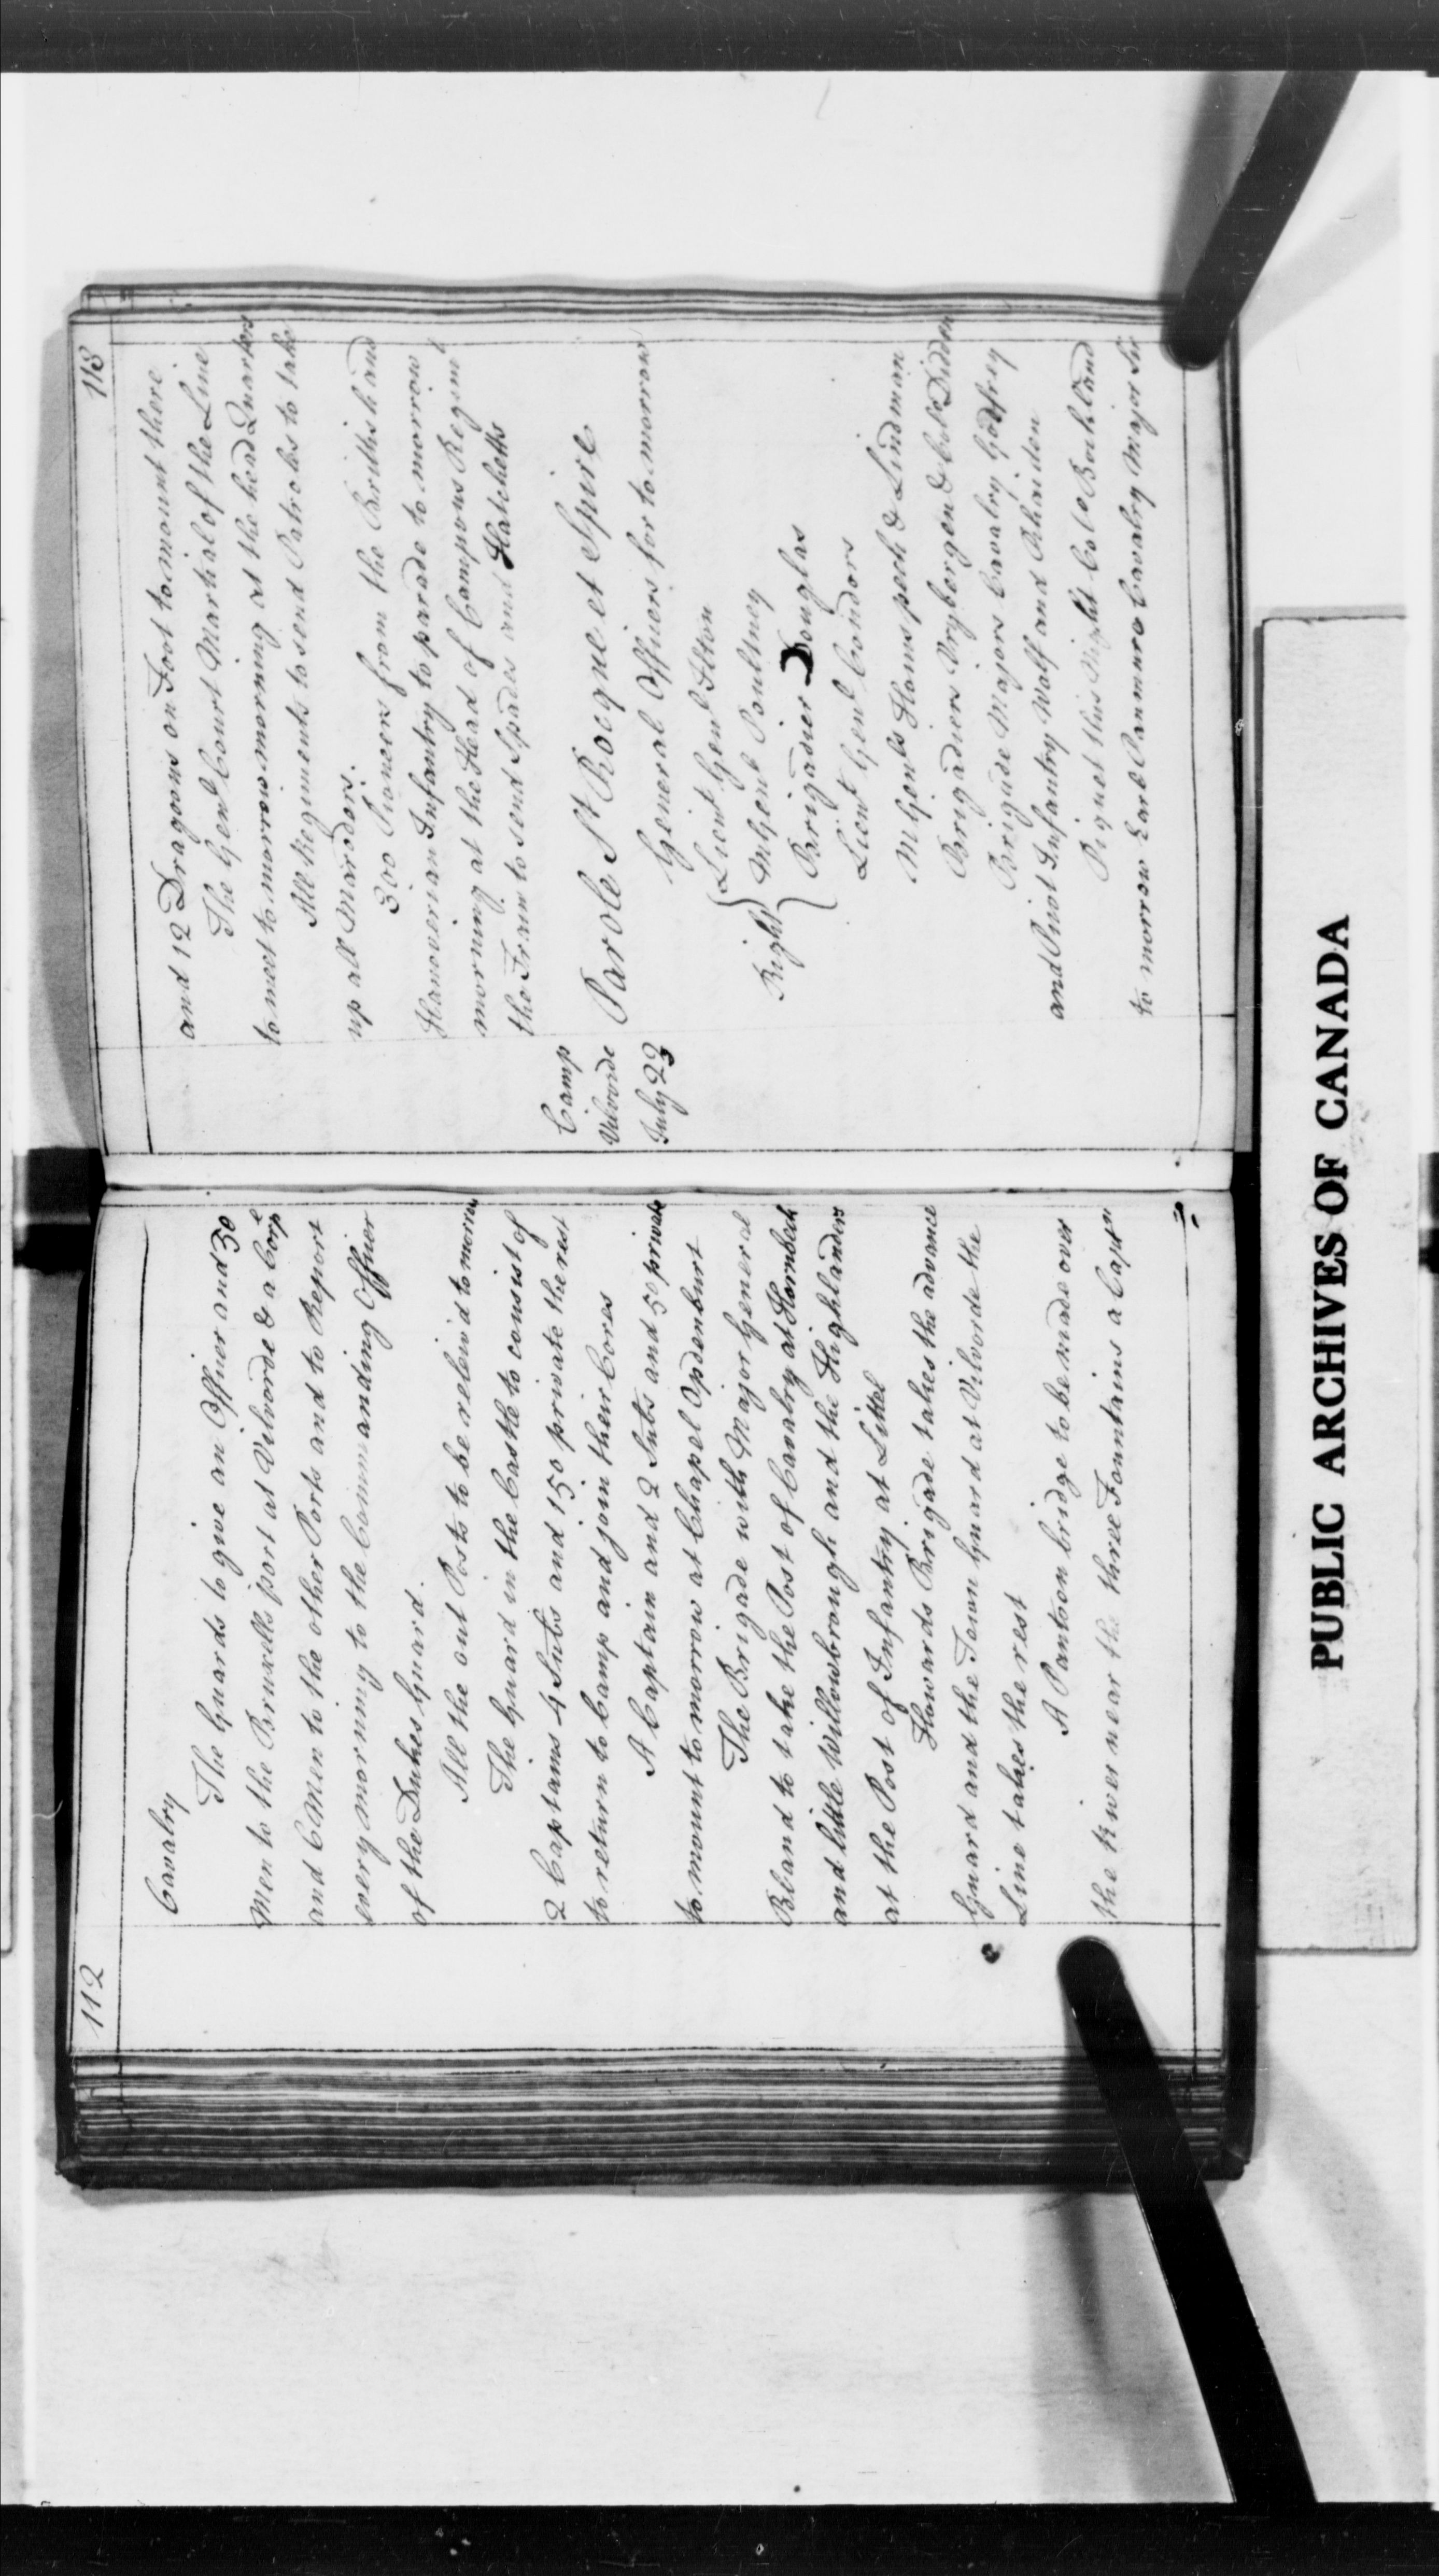 112
Cavalry
The Guards to give an Officer and 30
Men to the Bruxells port at Vilvorde & a Corpl
and 6 Men to the other Ports and to Report
every morning to the Commanding Officer
of the Dukes Guard.
All the out Posts to be releiv'd to morrow
The Guard in the Castle to consist of
2 Captains 4 Subs and 150 private the rest
to return to Camp and join their Cores
A Captain and 2 Subs and 50 private
to mount to morrow at Chapel Opdenburt
The Brigade with Major General
Bland to take the Post of Cavalry at Hornbeck
and little Willowbrough and the Highlanders
at the Post of Infantry at Littel
Howards Brigade takes the advance
Guard and the Town Guard at Vilvorde the
Line takes the rest
A Pontoon bridge to be made over
the River near the three Fountains a Captn
113
and 12 Dragoons on Foot to mount there
The Genl Court Martial of the Line
to meet to morrow morning at the head Quarters
All Regiments to send Patroles to take
up all Marodors.
300 Pioneers from the British and
Hanoverian Infantry to parade to morrow
morning at the Head of Campous Regimt
the Train to send Spades and Hatchetts
Camp
Vilvorde
July 23
Parole St Rocque et Spire
General Officers for to morrow
Right
Lieut Genl Ilton
M Genl Poultney
Brigadier Douglas
Lieut Genl Condors
M Genls Hauspech & Lindman
Brigadiers Bryborgen & Coll Didden
Brigade Majors Cavalry Godfrey
and Pivot Infantry Wolf and Rhaiden
Piquet this Night Coll Bockland
to morrow Earl Panmure Cavalry Major Sir
PUBLIC ARCHIVES OF CANADA